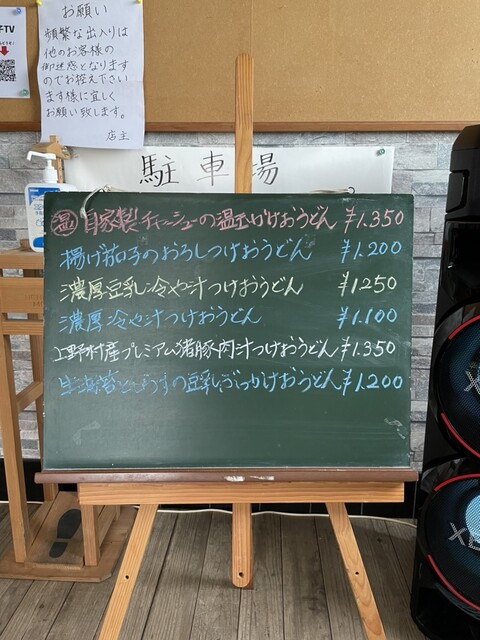 お願い
頻繁な出入りは
他のお客様の
御迷惑となります
のでお控え下さい
ます様に宜しく
お願い致します。
店主
駐車場
温 自家製チャーシューの温玉ぶっかけおうどん ¥1.350
揚げ茄子のおろしつけおうどん ¥1.200
濃厚豆乳冷や汁つけおうどん ¥1.250
濃厚冷や汁つけおうどん ¥1.100
上野村産プレミアム猪豚肉汁つけおうどん ¥1.350
生海苔としらすの豆乳ぶっかけおうどん ¥1.200